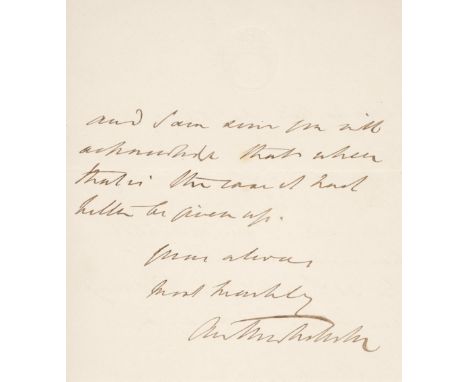 and I am sure you will
acknowledge that when
that is the case it had
better be given up.
yours always
most truly